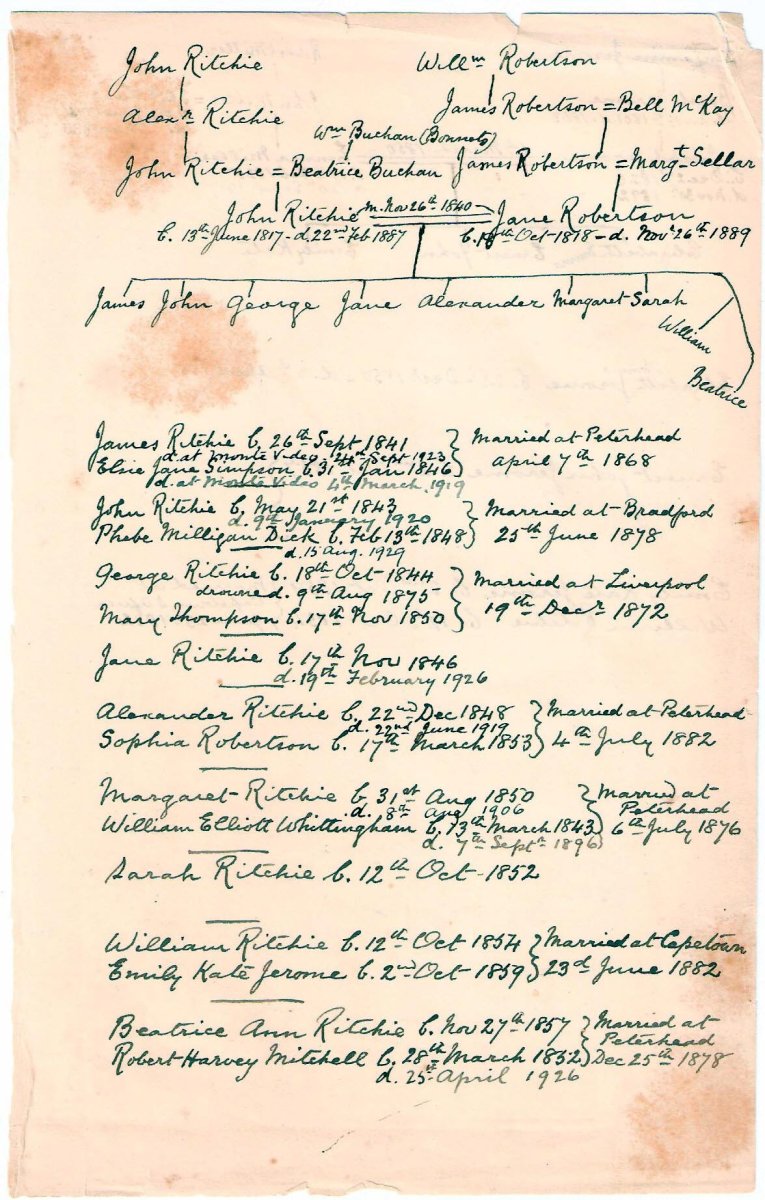 John Ritchie Willm Robertson
Alexr Ritchie James Robertson = Bell McKay
Wm Buchan (Bonnets)
John Ritchie = Beatrice Buchan James Robertson = Margt Sellar
John Ritchie m. Nov 26th 1840 Jane Robertson
b. 13th June 1817 - d. 22nd Feb 1887 b. Oct 1818 - d. Novr 26th 1889
James John George Jane Alexander Margaret Sarah
William
Beatrice
James Ritchie b. 26th Sept 1841 } Married at Peterhead
d. at Monte Video, 24th Sept 1923
Elsie Jane Simpson b. 31st Jan 1846 } April 7th 1868
d. at Monte Video 4th March. 1919
John Ritchie b. May 21st 1843 } Married at Bradford
d. 9th January 1920
Phebe Milligan Dick b. Feb 13th 1848 } 25th June 1878
d. 15 Aug. 1929
George Ritchie b. 18th Oct 1844 } Married at Liverpool
drowned. 9th Aug 1875
Mary Thompson b. 17th Nov 1850 } 19th Decr 1872
Jane Ritchie b. 17th Nov 1846
d. 19th February 1926
Alexander Ritchie b. 22nd Dec 1848 } Married at Peterhead
d. 22nd June 1919
Sophia Robertson b. 17th March 1853 } 4th July 1882
Margaret Ritchie b. 31st Aug 1850 } Married at
Peterhead
d. 8th 1906
William Elliott Whittingham b. 13th March 1843 } 6th July 1876
d. 7th Septr 1896
Sarah Ritchie b. 12th Oct 1852
William Ritchie b. 12th Oct 1854 } Married at Capetown
Emily Kate Jerome b. 2nd Oct 1859 } 23d June 1882
Beatrice Ann Ritchie b. Nov 27th 1857 } Married at
Peterhead
Robert Harvey Mitchell b. 28th March 1852 } Dec 25th 1878
d. 25th April 1926